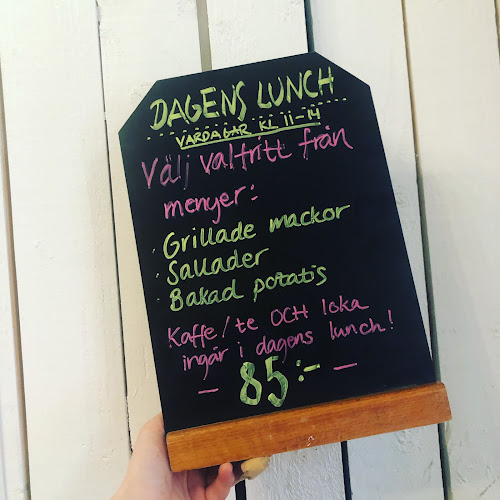 DAGENS LUNCH
VARDAGAR KL 11-14
Välj valfritt från
menyer:
· Grillade mackor
· Sallader
· Bakad potatis
Kaffe/te OCH loka
ingår i dagens lunch!
- 85:- -